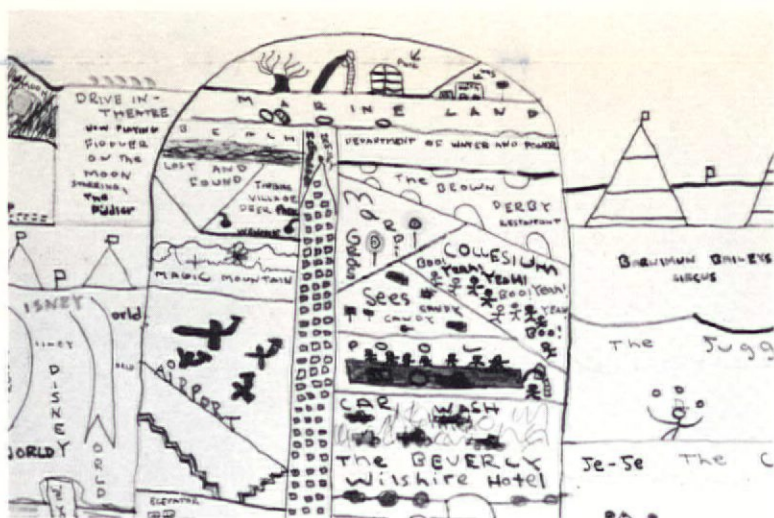 DRIVE IN-
THEATRE
NOW PLAYING
FIDDLER
ON THE
MOON
STARRING,
THE
FIDDLER
MARINE LAND
BEACH
DEPARTMENT OF WATER AND POWER
LOST AND
FOUND
VILLAGE
DEER PARK
THE BROWN
DERBY
RESTAURANT
MAGIC MOUNTAIN
COLLESIUM
BOO! YEAH!
YEAH!
BOO! YEAH!
YEAH!
BOO!
Sees
CANDY
CANDY
POOL
AIRPORT
CAR WASH
THE BEVERLY
Wilshire Hotel
ELEVATOR
ISNEY
orld
ISNEY
DISNEY
ORLD
ORLD
BARNUMUN BAILEYS
CIRCUS
The Jugg
Je-Je The C